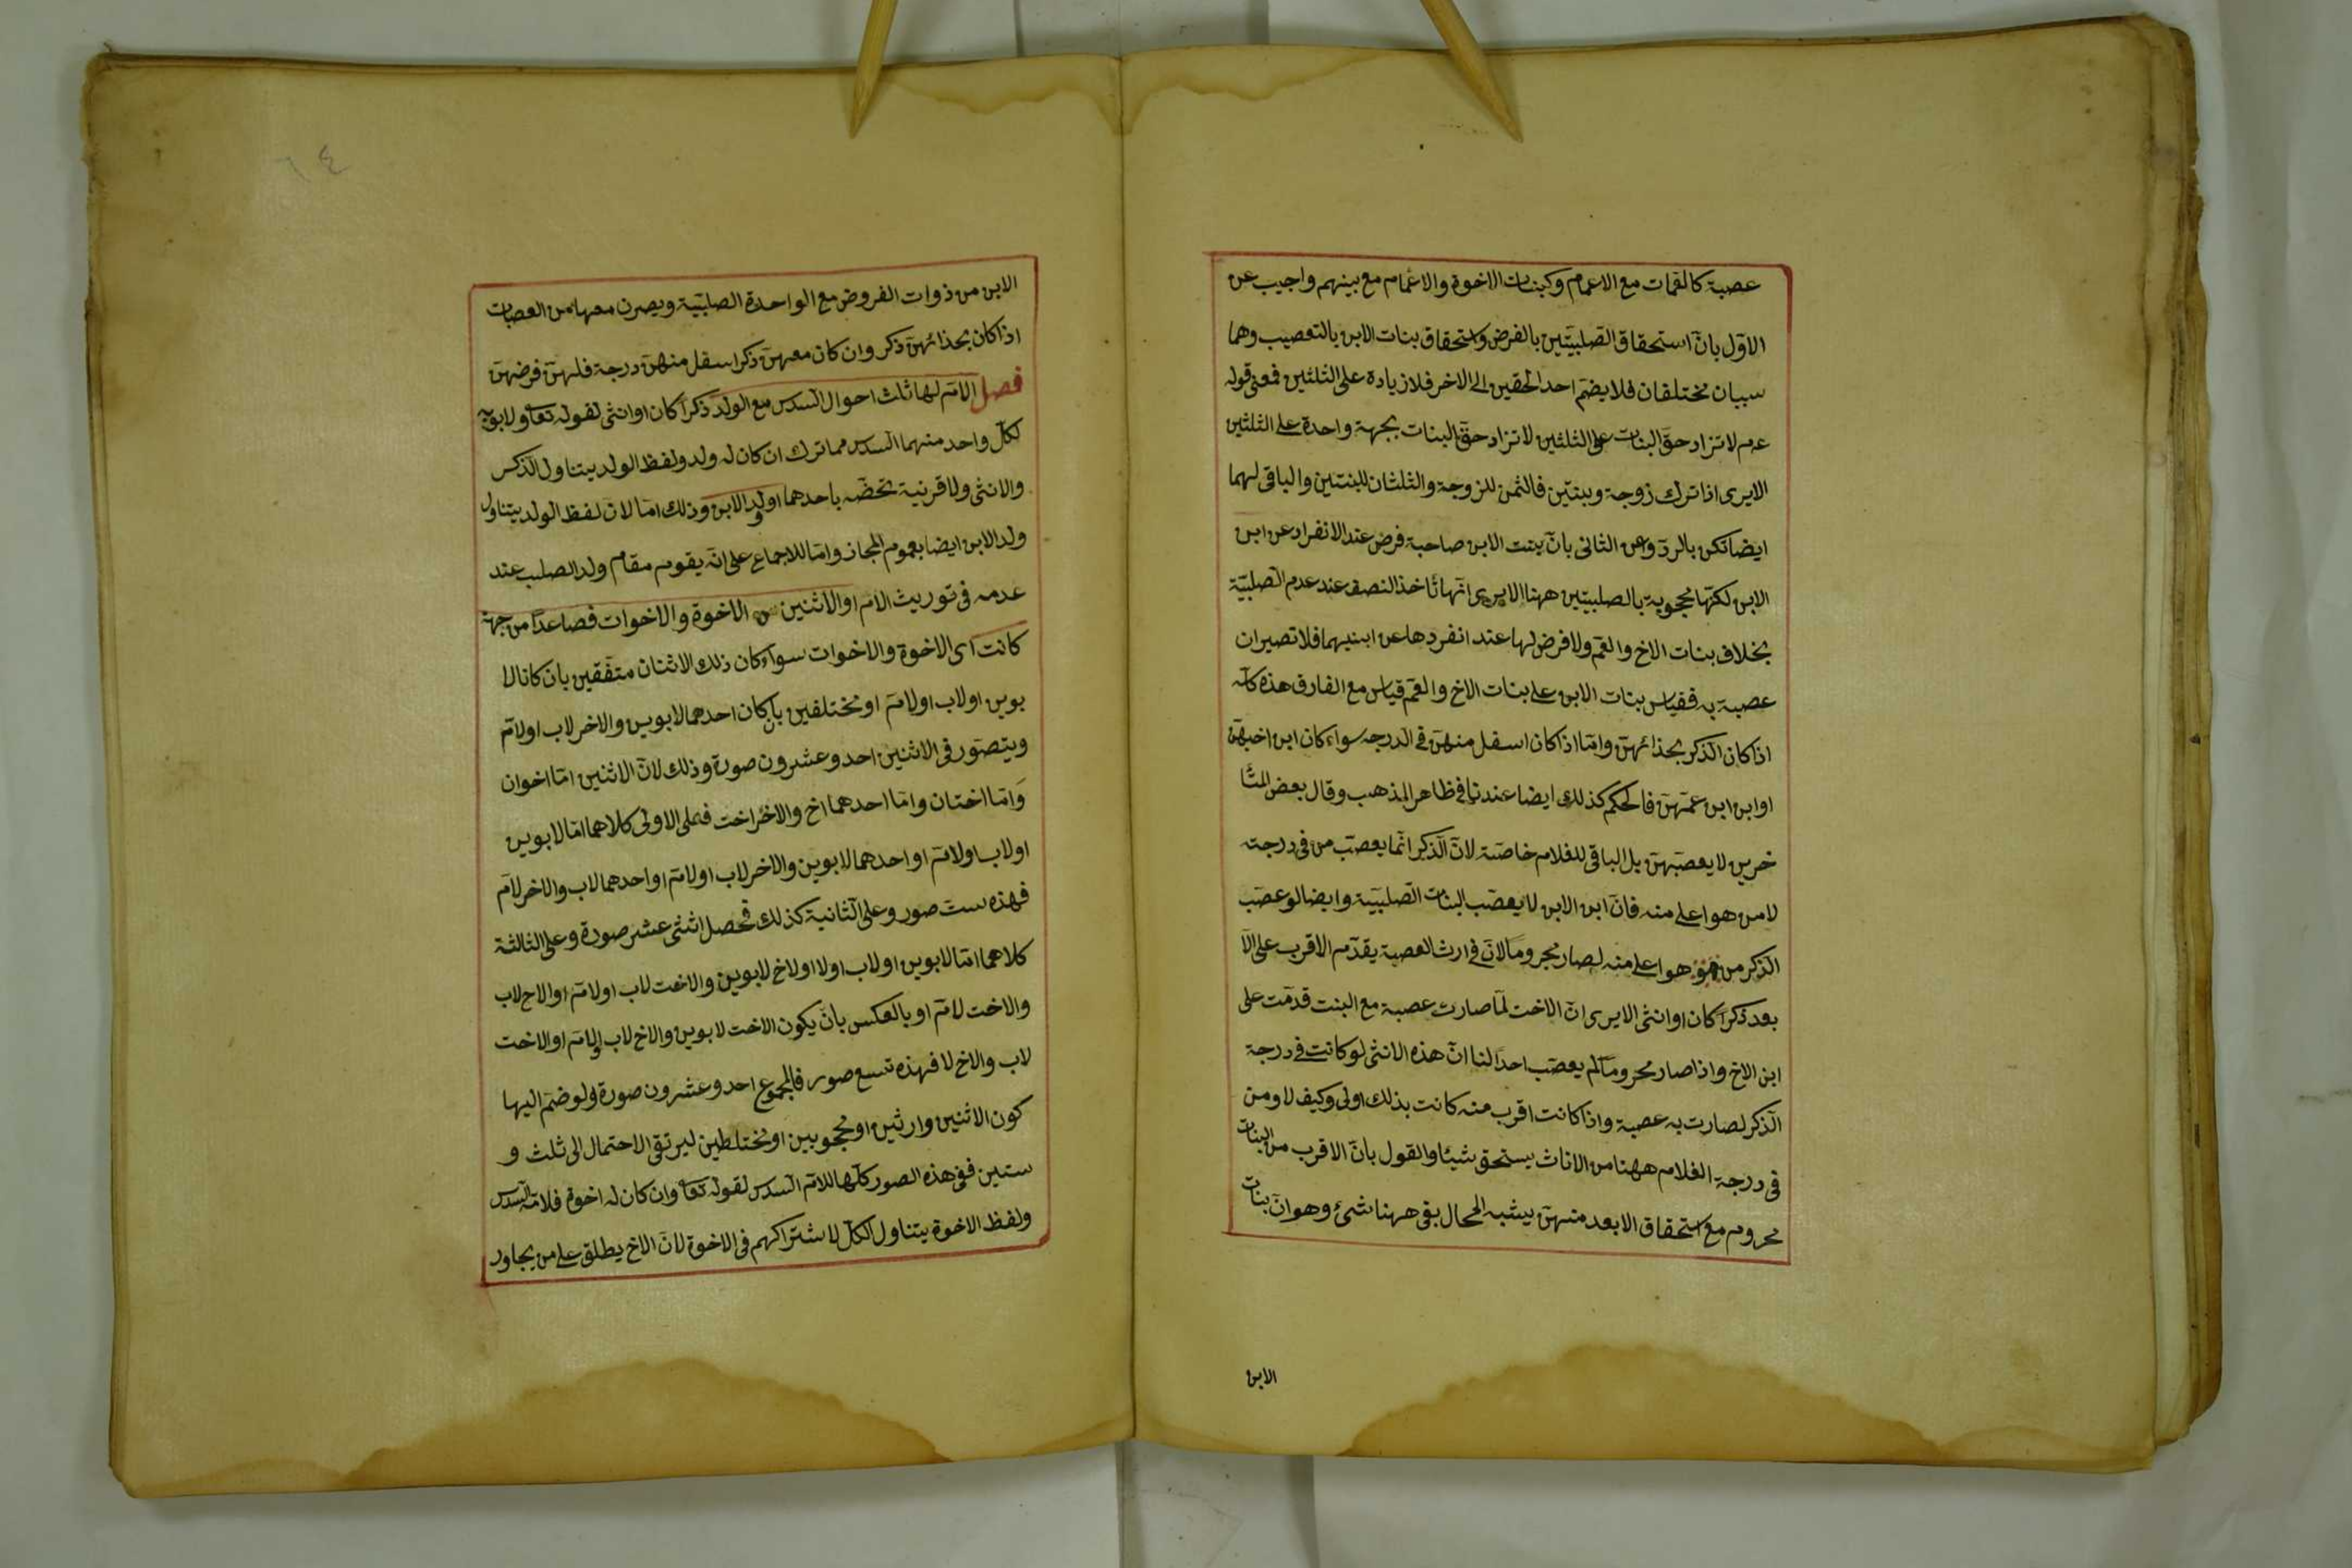 عصبة كالعمات مع الاعمام وكبنات الاخوة والاعمام مع بينهم واجيب عن
الاوّل بانّ استحقاق الصلبيّتين بالفرض واستحقاق بنات الابن بالتعصيب وهما
سببان مختلفان فلا يضم احد الحقين الى الاخر فلا زيادة على الثلثين فمعنى قوله
عم لا تزاد حقّ البنات على الثلثين لا تزاد حقّ البنات بجهة واحدة على الثلثين
الا يرى اذا ترك زوجة وبنتين فالثمن للزوجة والثلثان للبنتين والباقى لهما
ايضا لكن بالردّ وعن الثانى بانّ بنت الابن صاحبة فرض عند الانفراد عن ابن
الابن لكنّها محجوبة بالصلبيتين ههنا الا يرى انّها تأخذ النصف عند عدم الصلبيّة
بخلاف بنات الاخ والعمّ ولا فرض لها عند انفردها عن ابنيهما فلا تصيران
عصبة به فقياس بنات الابن على بنات الاخ والعمّ قياس مع الفارق هذه كلّه
اذا كان الذكر بحذائهنّ وامّا اذا كان اسفل منهنّ فى الدرجه سواء كان ابن اخيهنّ
او ابن ابن عمّهنّ فالحكم كذلك ايضا عندنا فى ظاهر المذهب وقال بعض المتأ
خرين لا يعصبّهنّ بل الباقى للغلام خاصّة لانّ الذّكر انّما يعصّب من فى درجته
لا من هو اعلى منه فانّ ابن الابن لا يعصّب البنات الصّلبيّة وايضا لو عصّب
الذكر من هو اعلى منه لصار محروما لانّ فى ارث العصبة يقدّم الاقرب على الا
بعد ذكراً كان او انثى الا يرى انّ الاخت لمّا صارت عصبة مع البنت قدّمت على
ابن الاخ واذا صار محروماً لم يعصّب احداً لنا انّ هذه الانثى لو كانت فى درجة
الذّكر لصارت به عصبة واذا كانت اقرب منه كانت بذلك اولى وكيف لا ومن
فى درجة الغلام ههنا من الاناث يستحق شيئا والقول بانّ الاقرب من البنات
محروم مع استحقاق الابعد منهنّ يشبه المحال بقى ههنا شئ وهو انّ بنات
الابن
الابن من ذوات الفروض مع الواحدة الصلبيّة ويصرن معها من العصبات
اذا كان بحذائهنّ ذكر وان كان معهنّ ذكر اسفل منهنّ درجة فلهنّ فرضهنّ
فصل الامّ لها ثلث احوال السّدس مع الولد ذكراً كان او انثى لقوله تعا ولابويه
لكلّ واحد منهما السّدس مما ترك ان كان له ولد ولفظ الولد يتناول الذّكر
والانثى ولا قرينة تخصّه باحدهما او ولد الابن وذلك امّا لان لفظ الولد يتناول
ولد الابن ايضا بعموم المجاز وامّا للاجماع على انّه يقوم مقام ولد الصلب عند
عدمه فى توريث الام او الاثنين من الاخوة والاخوات فصاعداً من جهة
كانت اى الاخوة والاخوات سواء كان ذلك الاثنان متّفقين بان كانا لا
بوين اولاب اولامّ او مختلفين بان كان احدهما لابوين والاخر لاب اولامّ
ويتصوّر فى الاثنين احد وعشرون صورة وذلك لانّ الاثنين امّا اخوان
وَامّا اختان وامّا احدهما اخ والاخر اخت فعلى الاولى كلاهما امّا لابوين
اولاب اولامّ او احدهما لابوين والاخر لاب اولامّ او احدهما لاب والاخر لامّ
فهذه ستّ صور وعلى الثانية كذلك فحصل اثنتى عشر صورة وعلى الثالثة
كلاهما امّا لابوين او لاب اولا او لاخ لابوين والاخت لاب اولامّ او الاخ لاب
والاخت لامّ او بالعكس بانّ يكون الاخت لابوين والاخ لاب او لامّ او الاخت
لاب والاخ لا فهذه تسع صور فالمجموع احد وعشرون صورة ولو ضمّ اليها
كون الاثنين وارثين او محجوبين او مختلطين ليرتقى الاحتمال الى ثلث و
ستين ففى هذه الصور كلّها للامّ السّدس لقوله تعا وان كان له اخوة فلامّه السّدس
ولفظ الاخوة يتناول الكلّ لاشتراكهم فى الاخوة لانّ الاخ يطلق على من يجاور
٦٤